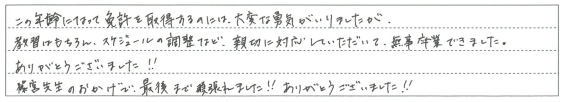 この年齢になって免許を取得するのには、大変な勇気がいりましたが、
教習はもちろん、スケジュールの調整など、親切に対応していただいて、無事卒業できました。
ありがとうございました!!
篠宮先生のおかげで、最後まで頑張れました!! ありがとうございました!!